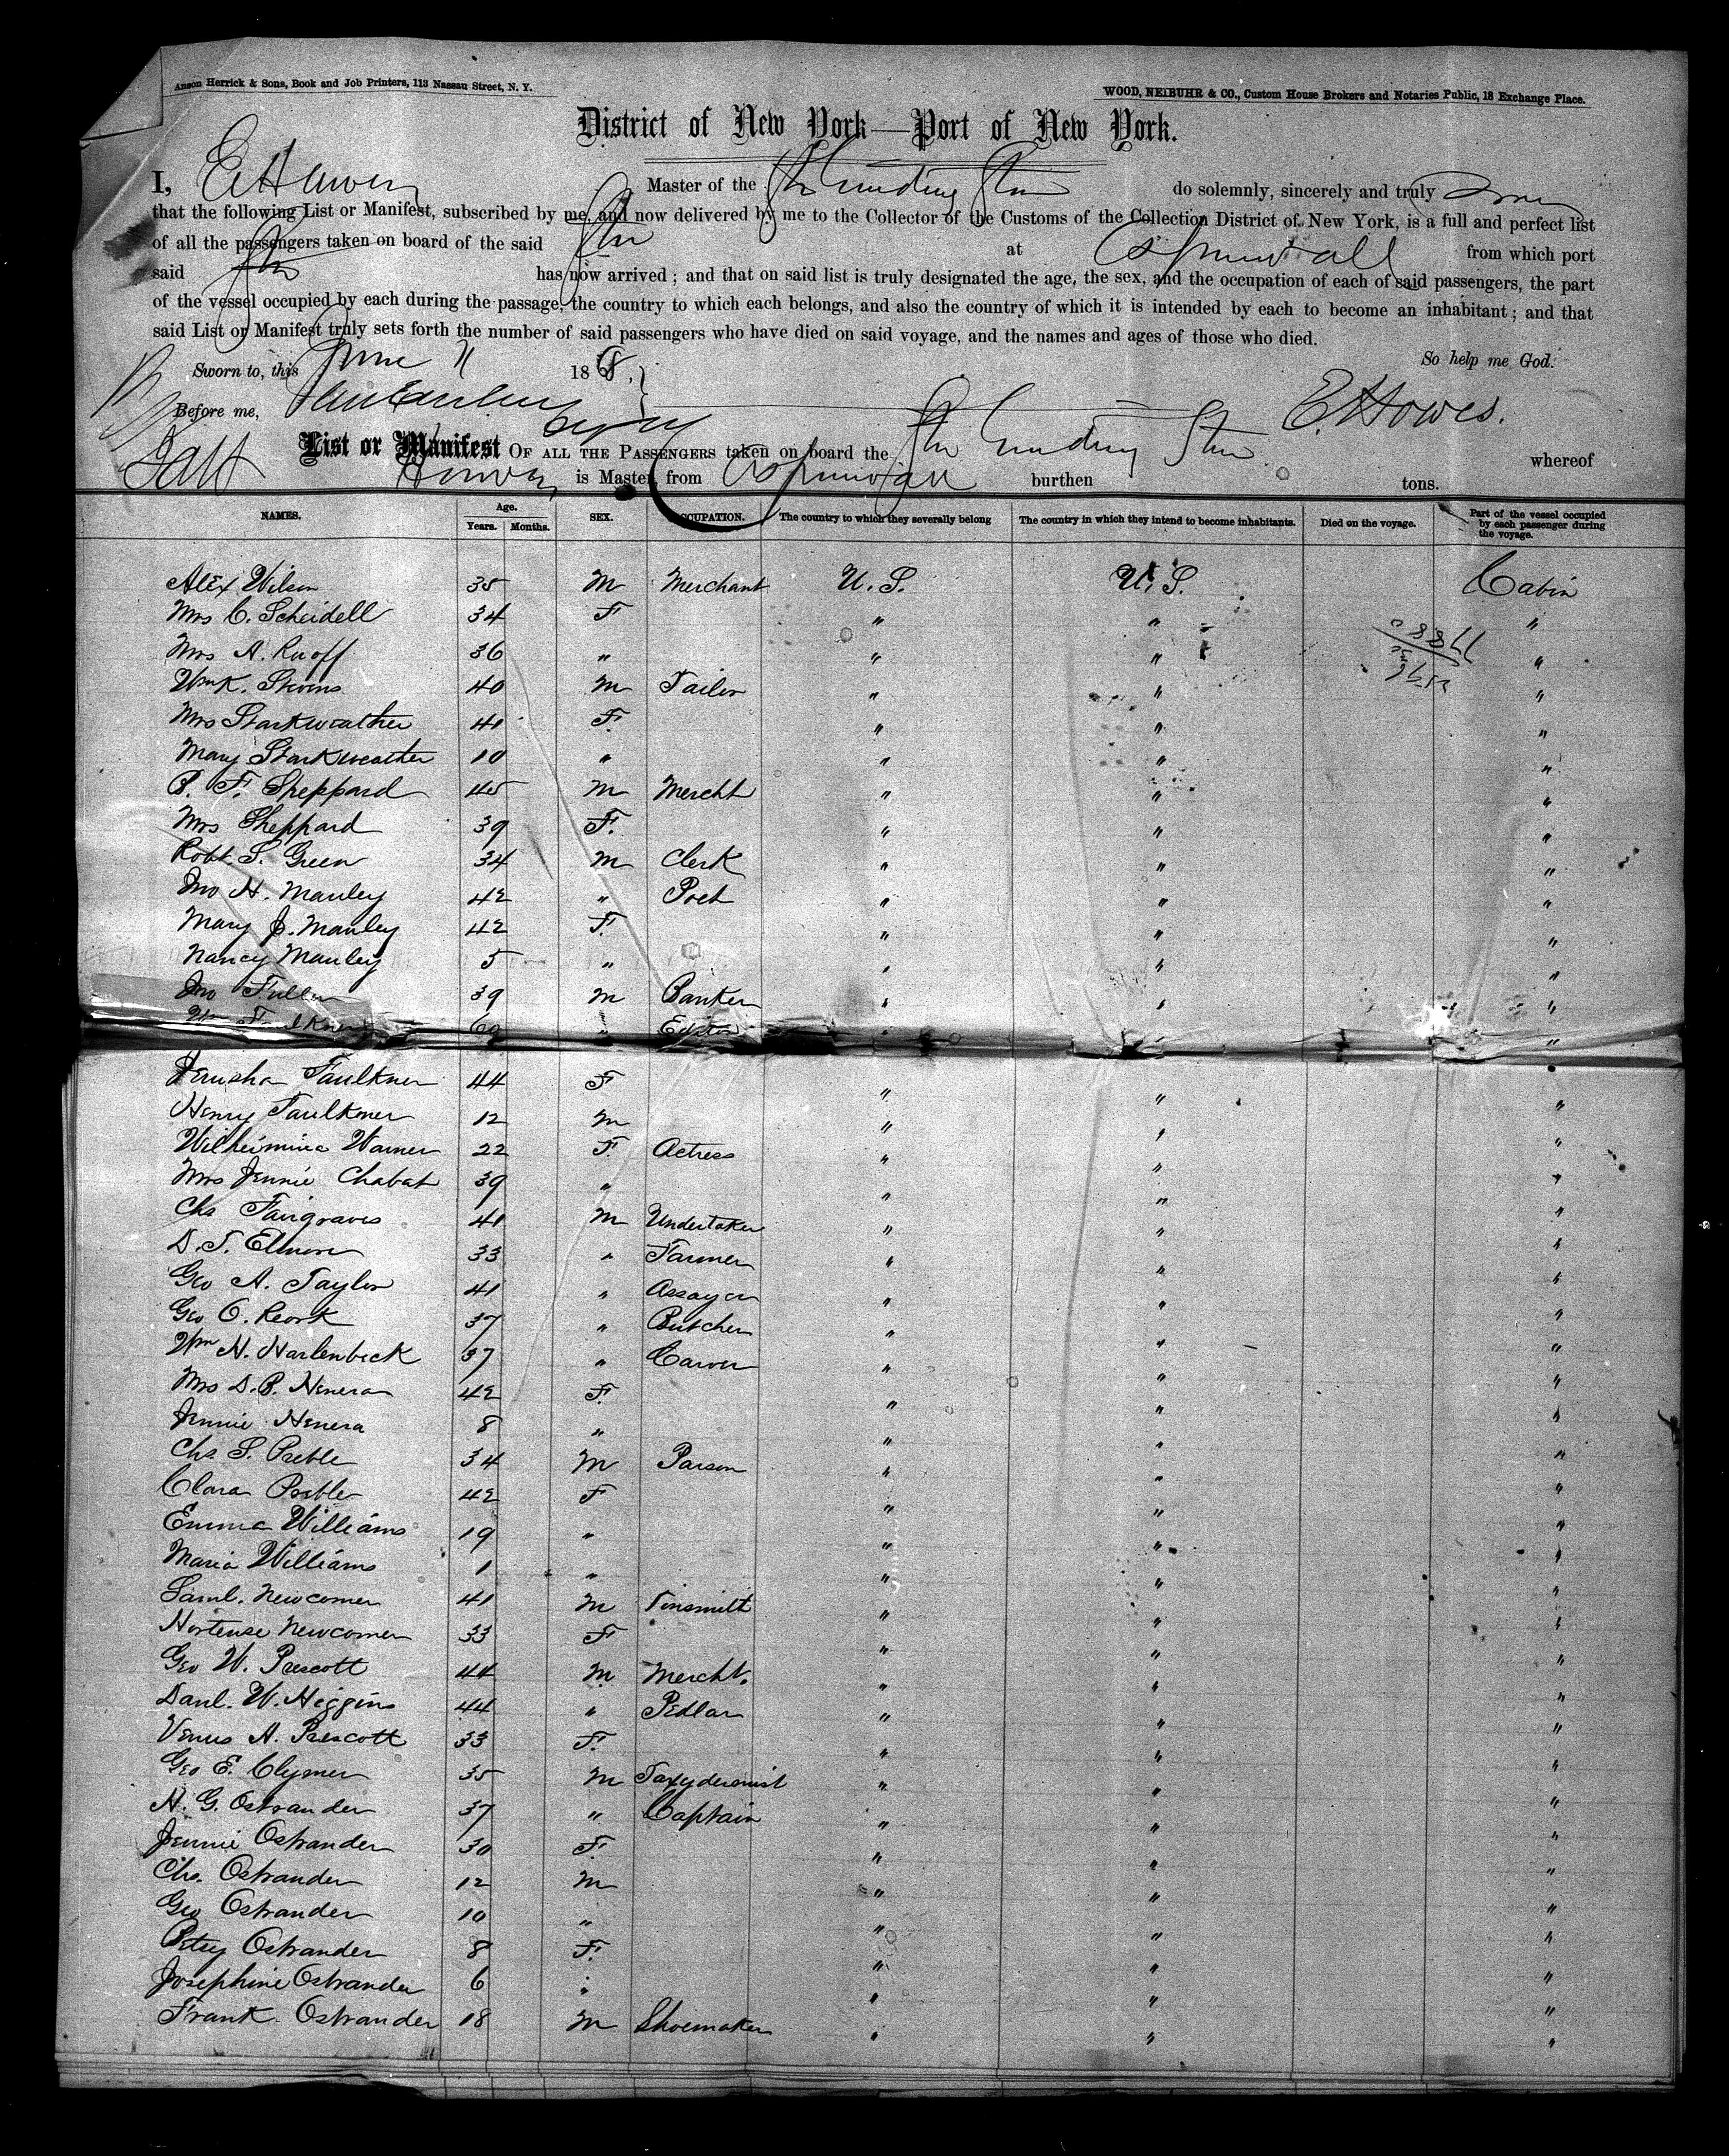 Anson Herrick & Sons, Book and Job Printers, 113 Nassau Street, N. Y.
WOOD, NEIBUHR & CO., Custom House Brokers and Notaries Public, 18 Exchange Place.
District of New York—Port of New York.
I, E H Howes Master of the Str Guiding Star do solemnly, sincerely and truly swear
that the following List or Manifest, subscribed by me, and now delivered by me to the Collector of the Customs of the Collection District of New York, is a full and perfect list
of all the passengers taken on board of the said Str at Aspinwall from which port
said Str has now arrived; and that on said list is truly designated the age, the sex, and the occupation of each of said passengers, the part
of the vessel occupied by each during the passage, the country to which each belongs, and also the country of which it is intended by each to become an inhabitant; and that
said List or Manifest truly sets forth the number of said passengers who have died on said voyage, and the names and ages of those who died.
So help me God.
Sworn to, this June 11 186
Before me, E. H Howes.
List or Manifest OF ALL THE PASSENGERS taken on board the Str Guiding Star whereof
Howes is Master, from Aspinwall burthen tons.
NAMES. Age. Years. Months. SEX. OCCUPATION. The country to which they severally belong The country in which they intend to become inhabitants. Died on the voyage. Part of the vessel occupied by each passenger during the voyage.
Alex Wilson 35 M Merchant U. S. U. S. Cabin
Mrs C. Scheidell 34 F " " "
Mrs A. Ruoff 36 " " " "
Wm K. Stevens 40 M Tailor " " "
Mrs Starkweather 41 F " " "
Mary Starkweather 10 " " " "
B. F. Sheppard 45 M Mercht " " "
Mrs Sheppard 39 F. " " "
Robt. S. Green 34 M Clerk " " "
Jno H. Manley 42 " Poet " " "
Mary J. Manley 42 F. " " "
Nancy Manley 5 " " " "
Jno Fuller 39 M Banker " " "
Wm Faulkner 60 " Editor " "
Jerusha Faulkner 44 F " " "
Henry Faulkner 12 M " " "
Wilhelmina Warner 22 F. Actress " " "
Mrs Jennie Chabat 39 " " " "
Chs Fairgraves 41 M Undertaker " " "
D. T. Elmore 33 " Farmer " " "
Geo A. Taylor 41 " Assayer " " "
Geo O. Reork 37 " Butcher " " "
Wm H. Harlenbeck 37 " Carver " " "
Mrs D. B. Henera 42 F. " " "
Jennie Henera 8 " " " "
Chs. S. Preble 34 M Parson " " "
Clara Preble 42 F " " "
Emma Williams 19 " " " "
Maria Williams 1 " " " "
Saml. Newcomer 41 M Tinsmith " " "
Hortense Newcomer 33 F " " "
Geo W. Prescott 44 M Mercht. " " "
Danl. W. Higgins 44 " Pedlar " " "
Venus A. Prescott 33 F. " " "
Geo E. Clymer 35 M Taxydermist " " "
H. G. Ostrander 37 " Captain " " "
Jennie Ostrander 30 F. " " "
Chs. Ostrander 12 M " " "
Geo Ostrander 10 " " " "
Betsy Ostrander 8 F. " " "
Josephine Ostrander 6 " " " "
Frank Ostrander 18 M Shoemaker " " "